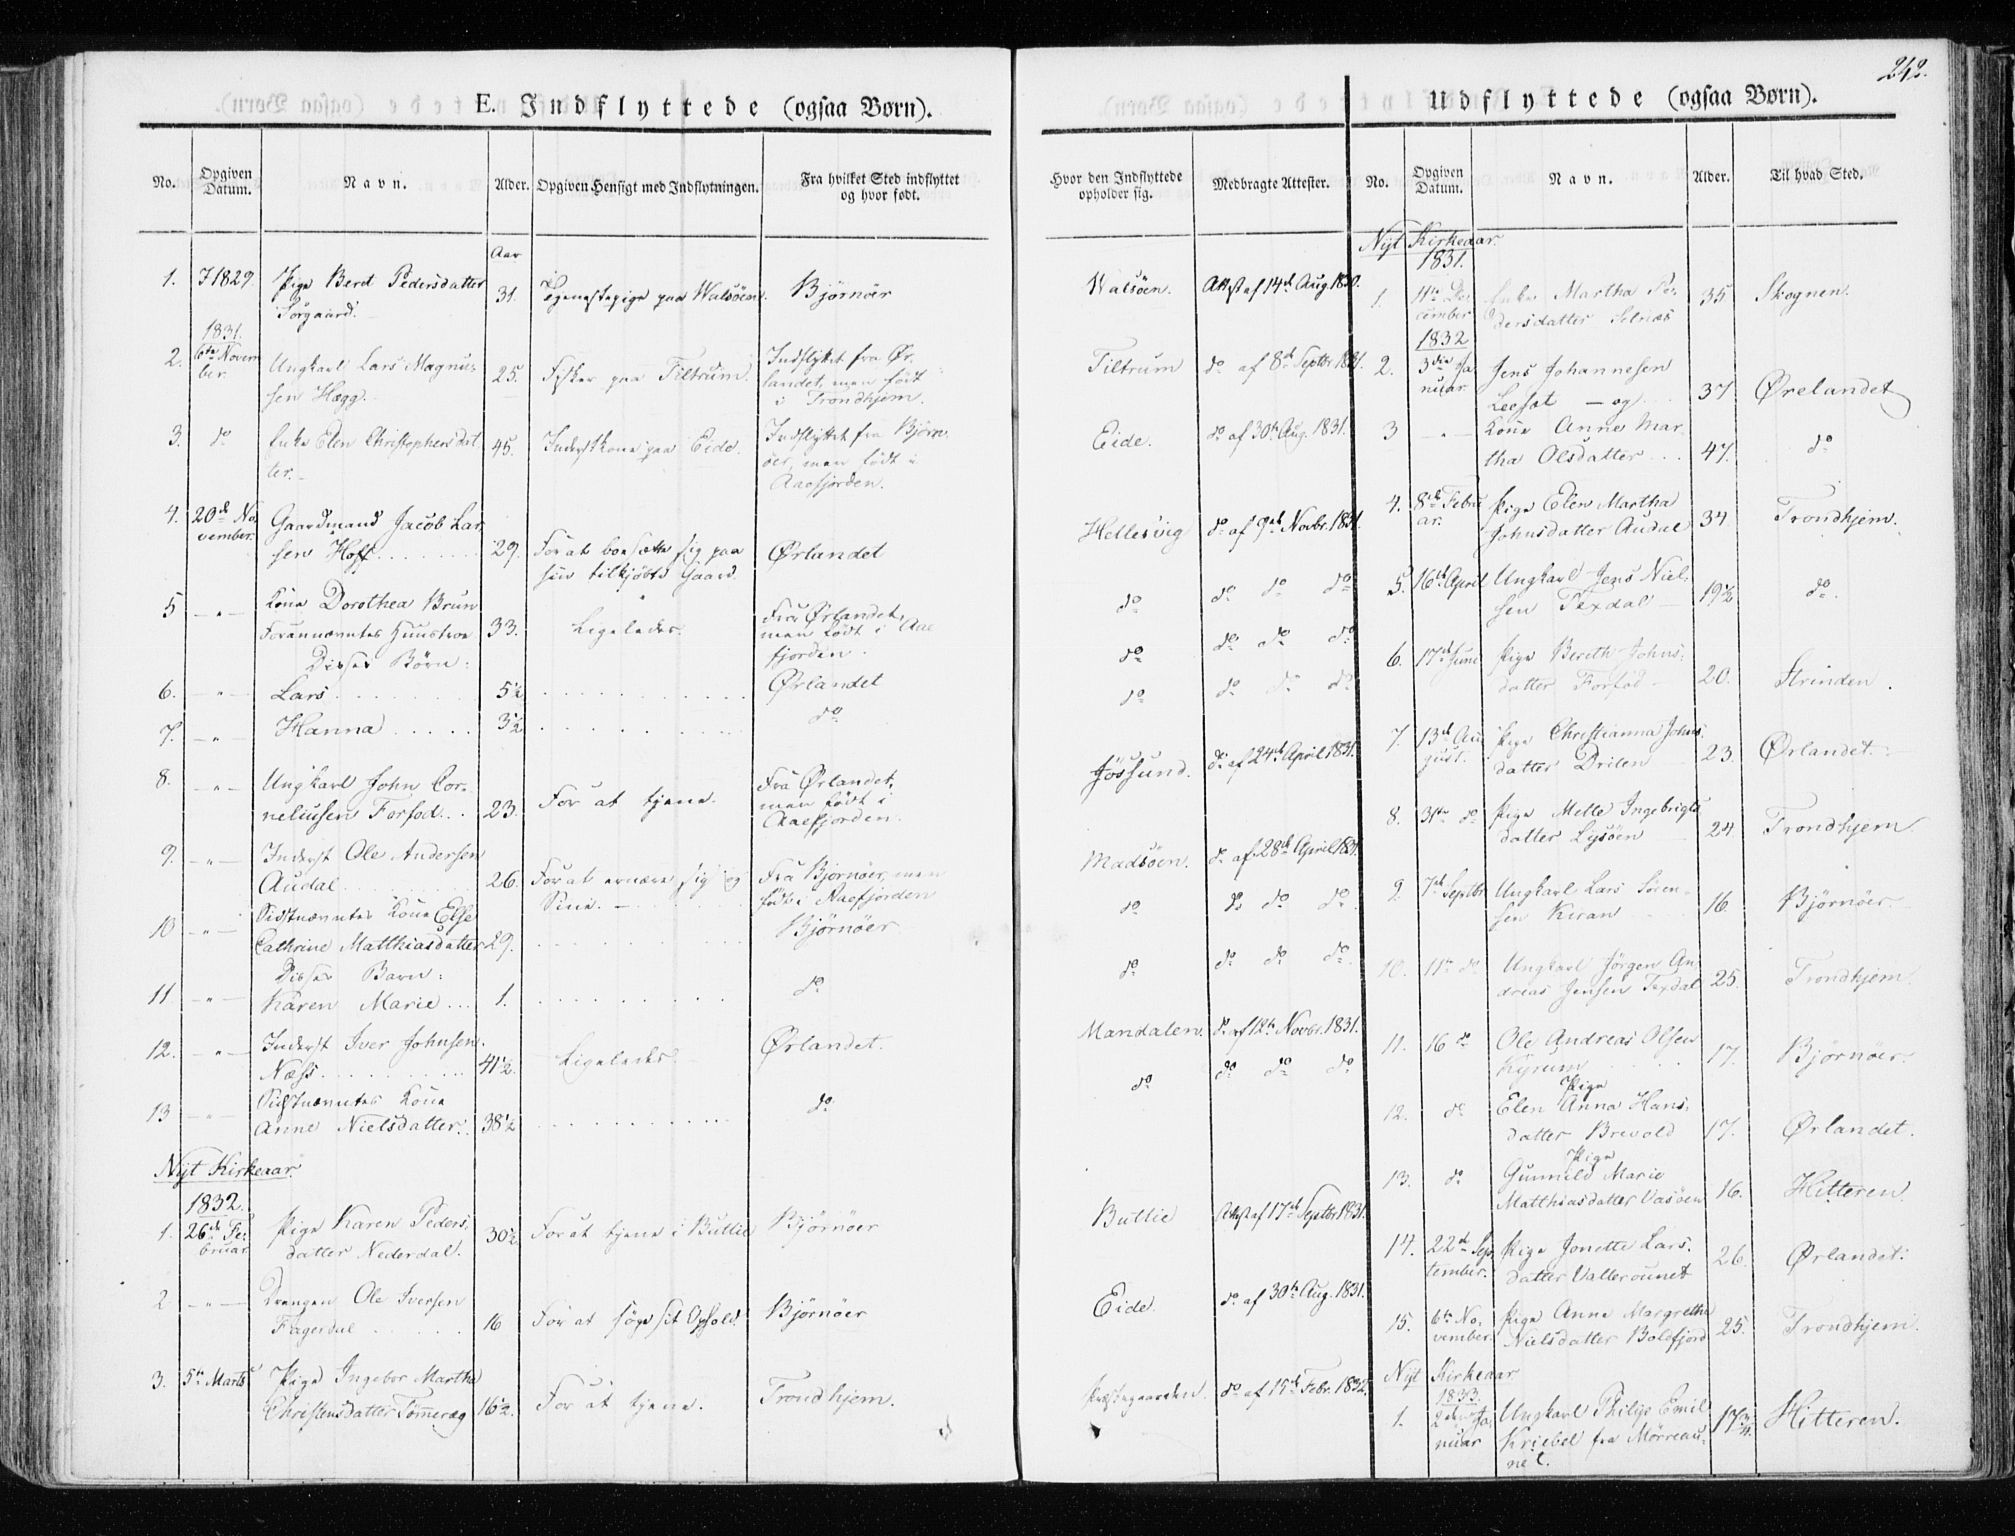 242.
E. Indflyttede (ogsaa Børn).
No.
Opgiven Datum.
Navn.
Alder.
Opgiven Hensigt med Indflytningen.
Fra hvilket Sted indflyttet og hvor født.
Hvor den Indflyttede opholder sig.
Medbragte Attester.
Aar
1. 1829. Pige Beret Pedersdatter 31. Tjenestepige paa Walsöen. Bjørnöer Walsöen. Attest af 14de Aug. 1830.
Sorgaard.
1831.
2. 6te Novem Ungkarl Lars Magnu- 25. Fisker paa Tiltrum. Indflyttet fra Ør- Tiltrum do af 8de Septbr 1831.
ber. sen Hægg. landet, men født
i Trondhjem.
3. do Enke Elen Christophersdat 45. Inderstkone paa Eide. Indflyttet fra Bjørn Eide. do af 30te Aug. 1831.
ter. öer, men født i
Aaefjorden.
4. 20de No- Gaardmand Jacob Lar
vember. sen Hoff 29. For at boesætte sig paa Ørlandet Hellesvig do af 9de Novbr. 1831.
sin tilkjøbte Gaard.
5 -"- Kone Dorothea Brun
Forannævntes Huustroe 33. Ligeledes. Fra Ørlandet, do do do do
men født i Aae
fjorden.
Disses Børn:
6. -"- Lars 5½ Ørlandet do do do do
7. -"- Hanna 3½ do do do do do
8. -"- Ungkarl John Cor-
neliusen Forfod. 23. For at tjene. Fra Ørlandet, Jössund. do af 24de April 1831.
men født i
Aaefjorden.
9. -"- Inderst Ole Andersen
Audal 26. For at ernære sig og Fra Bjørnöer, men Madsöen. do af 28de April 1831.
Sine. født i Aaefjorden
10 -"- Sidstnævntes Kone Else
Cathrine Matthiasdatter 29. Bjørnöer do do do do
Disses Barn:
11. -"- Karen Marie 1. do do do do do
12. -"- Inderst Iver Johnsen
Næss. 41½. Ligeledes Ørlandet. Mandalen. do af 12te Novbr. 1831.
13 -"- Sidstnævntes Kone
Anne Nielsdatter. 38½ do do do do do
Nyt Kirkeaar.
1832.
1. 26de Fe- Pige Karen Peders 30½ For at tjene i Buttie Bjørnöer Buttie Attest af 17de Septbr 1831.
bruar datter Nederdal.
2 -"- Drengen Ole Iversen
Fagerdal 16 For at søge sit Ophold. Bjørnöer Eide. do af 30te Aug. 1831.
3. 5te Marts Pige Ingebor Martha
Christensdatter Tömmeræg 16½. For at tjene. Trondhjem. Præstegaarden. do af 15de Febr. 1832.
Udflyttede (ogsaa Børn).
No.
Opgiven Datum.
Navn.
Alder.
Til hvad Sted.
Nyt Kirkeaar.
1831.
1. 11te De- Enke Martha Pe- 35 Skognen.
cember dersdatter Selnæs
1832
2. 3die Ja Jens Johannesen
nuar. Leesat - og 37 Ørelandet
3 -"- Kone Anne Mar
tha Olsdatter 47. do
4. 8de Febru Pige Elen Martha
ar. Johnsdatter Audal 34. Trondhjem.
5. 16de April Ungkarl Jens Niel-
sen Texdal 19½ do.
6. 17de Juni Pige Bereth Johns-
datter Forfod 20. Strinden.
7. 13de Au Pige Christianna Johns
gust. datter Drilen 23. Ørlandet.
8. 31te do Pige Mette Ingebrigts
datter Lysöen 24 Trondhjem.
9. 7de Septbr Ungkarl Lars Sören-
sen Kiran 16. Bjørnöer.
10. 11te do Ungkarl Jörgen An
dreas Jensen Texdal 25. Trondhjem.
11. 16 do Ole Andreas Olsen
Kyrum 17. Bjørnöer.
Pige
12. do Elen Anna Hans-
datter Brevold 17. Ørlandet.
Pige
13. do Gunnild Marie
Matthiasdatter Vasöen 16. Hitteren.
14. 22de Sep Pige Jonette Lars-
tember. datter Vallersunet 26. Ørlandet.
15. 6te No- Pige Anne Margrethe
vember. Nielsdatter Bolefjord 25. Trondhjem.
Nyt Kirkeaar.
1833.
1. 2den Ja- Ungkarl Philip Emil
nuar Kriebel fra Mörreau- 17¾. Hitteren.
net.